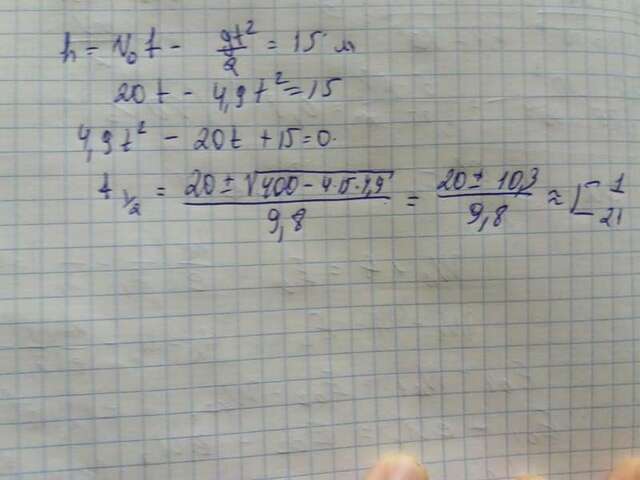 h = V₀t - gt²/2 = 15 м
20t - 4,9t² = 15
4,9t² - 20t + 15 = 0.
t 1/2 = (20 ± √(400 - 4·15·4,9))/9,8 = (20 ± 10,3)/9,8 ≈ [ 1